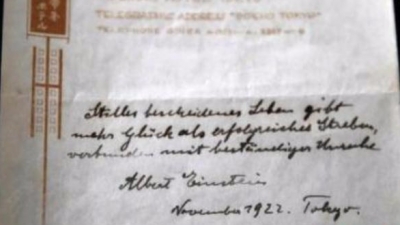 TELEGRAPHIC ADDRESS
TOKYO"
TELEPHONE
Stilles bescheidenes Leben gibt
mehr Glück als erfolgreiches Streben,
verbunden mit beständiger Unruhe.
Albert Einstein
November 1922. Tokyo.